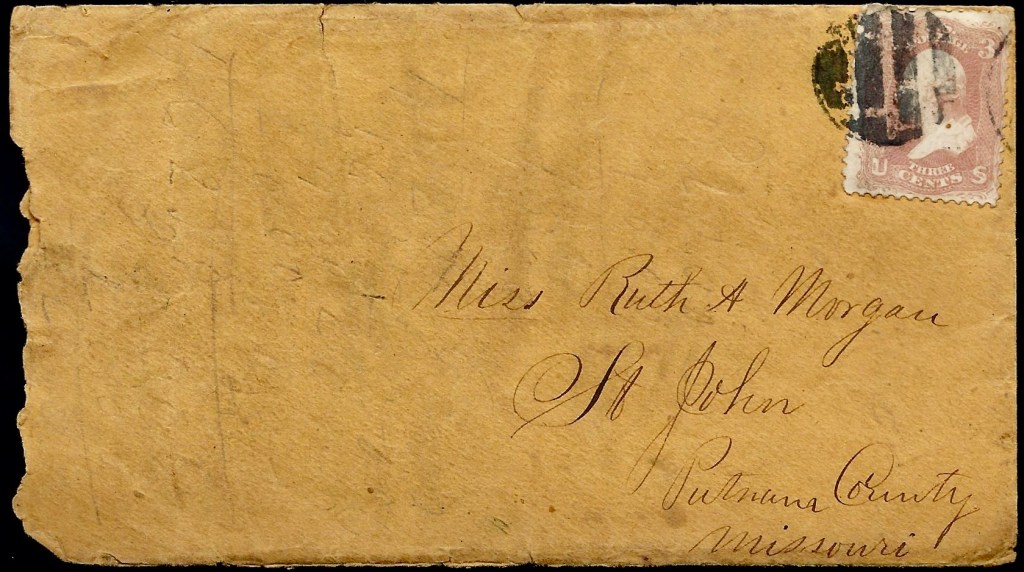 3
U S
THREE
CENTS
Miss Ruth A Morgan
St John
Putnam County
Missouri